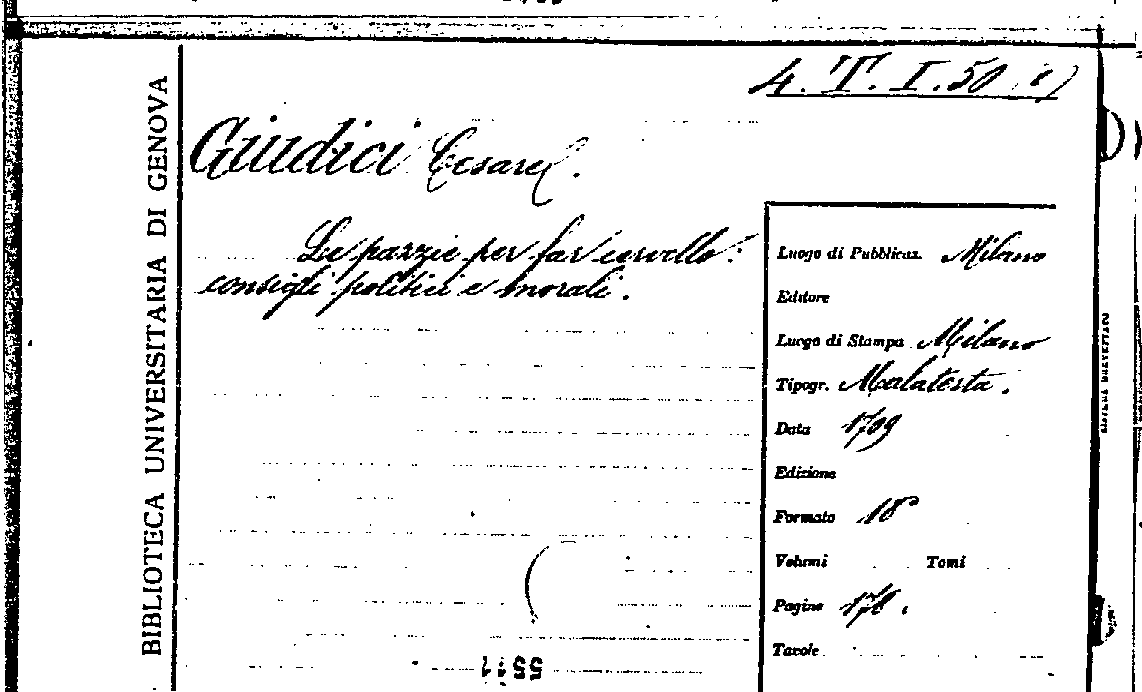 4. T. I. 50
BIBLIOTECA UNIVERSITARIA DI GENOVA
Giudici Cesare.
Le pazzie per far cervello:
consigli politici e morali.
Luogo di Pubblicaz. Milano
Editore
Luogo di Stampa Milano
Tipogr. Malatesta.
Data 1709
Edizione
Formato 18°
Volumi Tomi
Pagine
Tavole